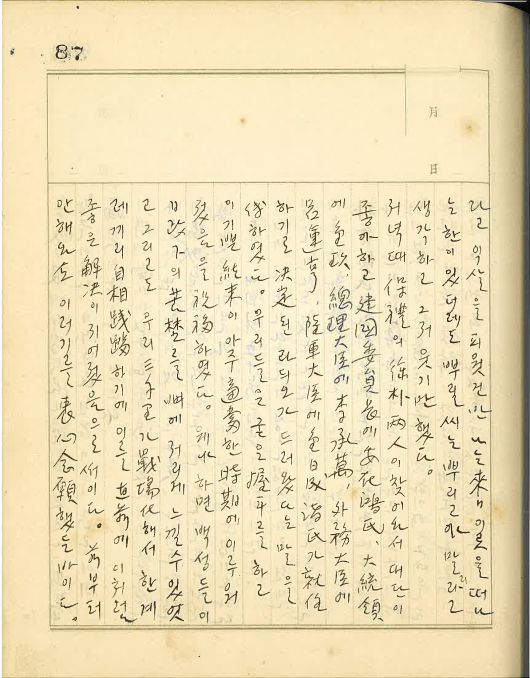 87
月
日
라고 익살을 피웠건만 나는 來 이곳을 떠나
는 한이 있더래도 뿌릴 씨는 뿌리고야 말리라고
생각하고 그저 웃기만 했다.
저녁때 保禮의 徐朴 両人이 찾어와서 대단이
좋아하고 建國委員長에 安在鴻氏, 大統領
에 金 總理大臣에 李承萬, 外務大臣에
呂運亨, 陸軍大臣에 金日成 諸氏가 就任
하기로 決定된 라듸오가 드러왔다는 말을
傳하였다. 우리들은 굳은 握手를 하고
이 기쁜 結末이 아주 適當한 時期에 이루워
젔음을 祝福하였다. 왜냐하면 백성들이
日政下의 苦楚를 뼈에 저리게 느낄 수 있었
고 그리고도 우리 三千里가 戰場化해서 한계
레끼리 自相踐踏하기에 이를 直前에 이처럼
좋은 解決이 지어젔음으로써이다. 前부터
안해와도 이러기를 衷心念願했든 바이다.